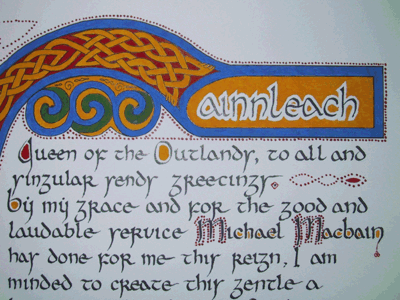 ainnleach
Queen of the Outlands, to all and
singular sends greetings.
by my grace and for the good and
laudable service Michael Macbain
has done for me this reign, I am
minded to create this gentle a